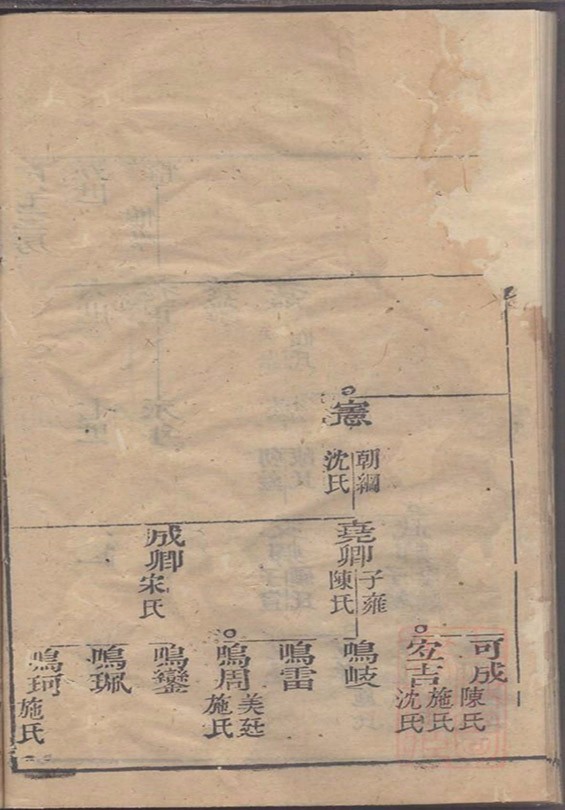 憲
朝綱
沈氏
堯卿
子雍
陳氏
成卿
宋氏
可成
陳氏
安吉
施氏
沈氏
鳴岐
鳴雷
鳴周
美廷
施氏
鳴鑾
鳴珮
鳴珂
施氏